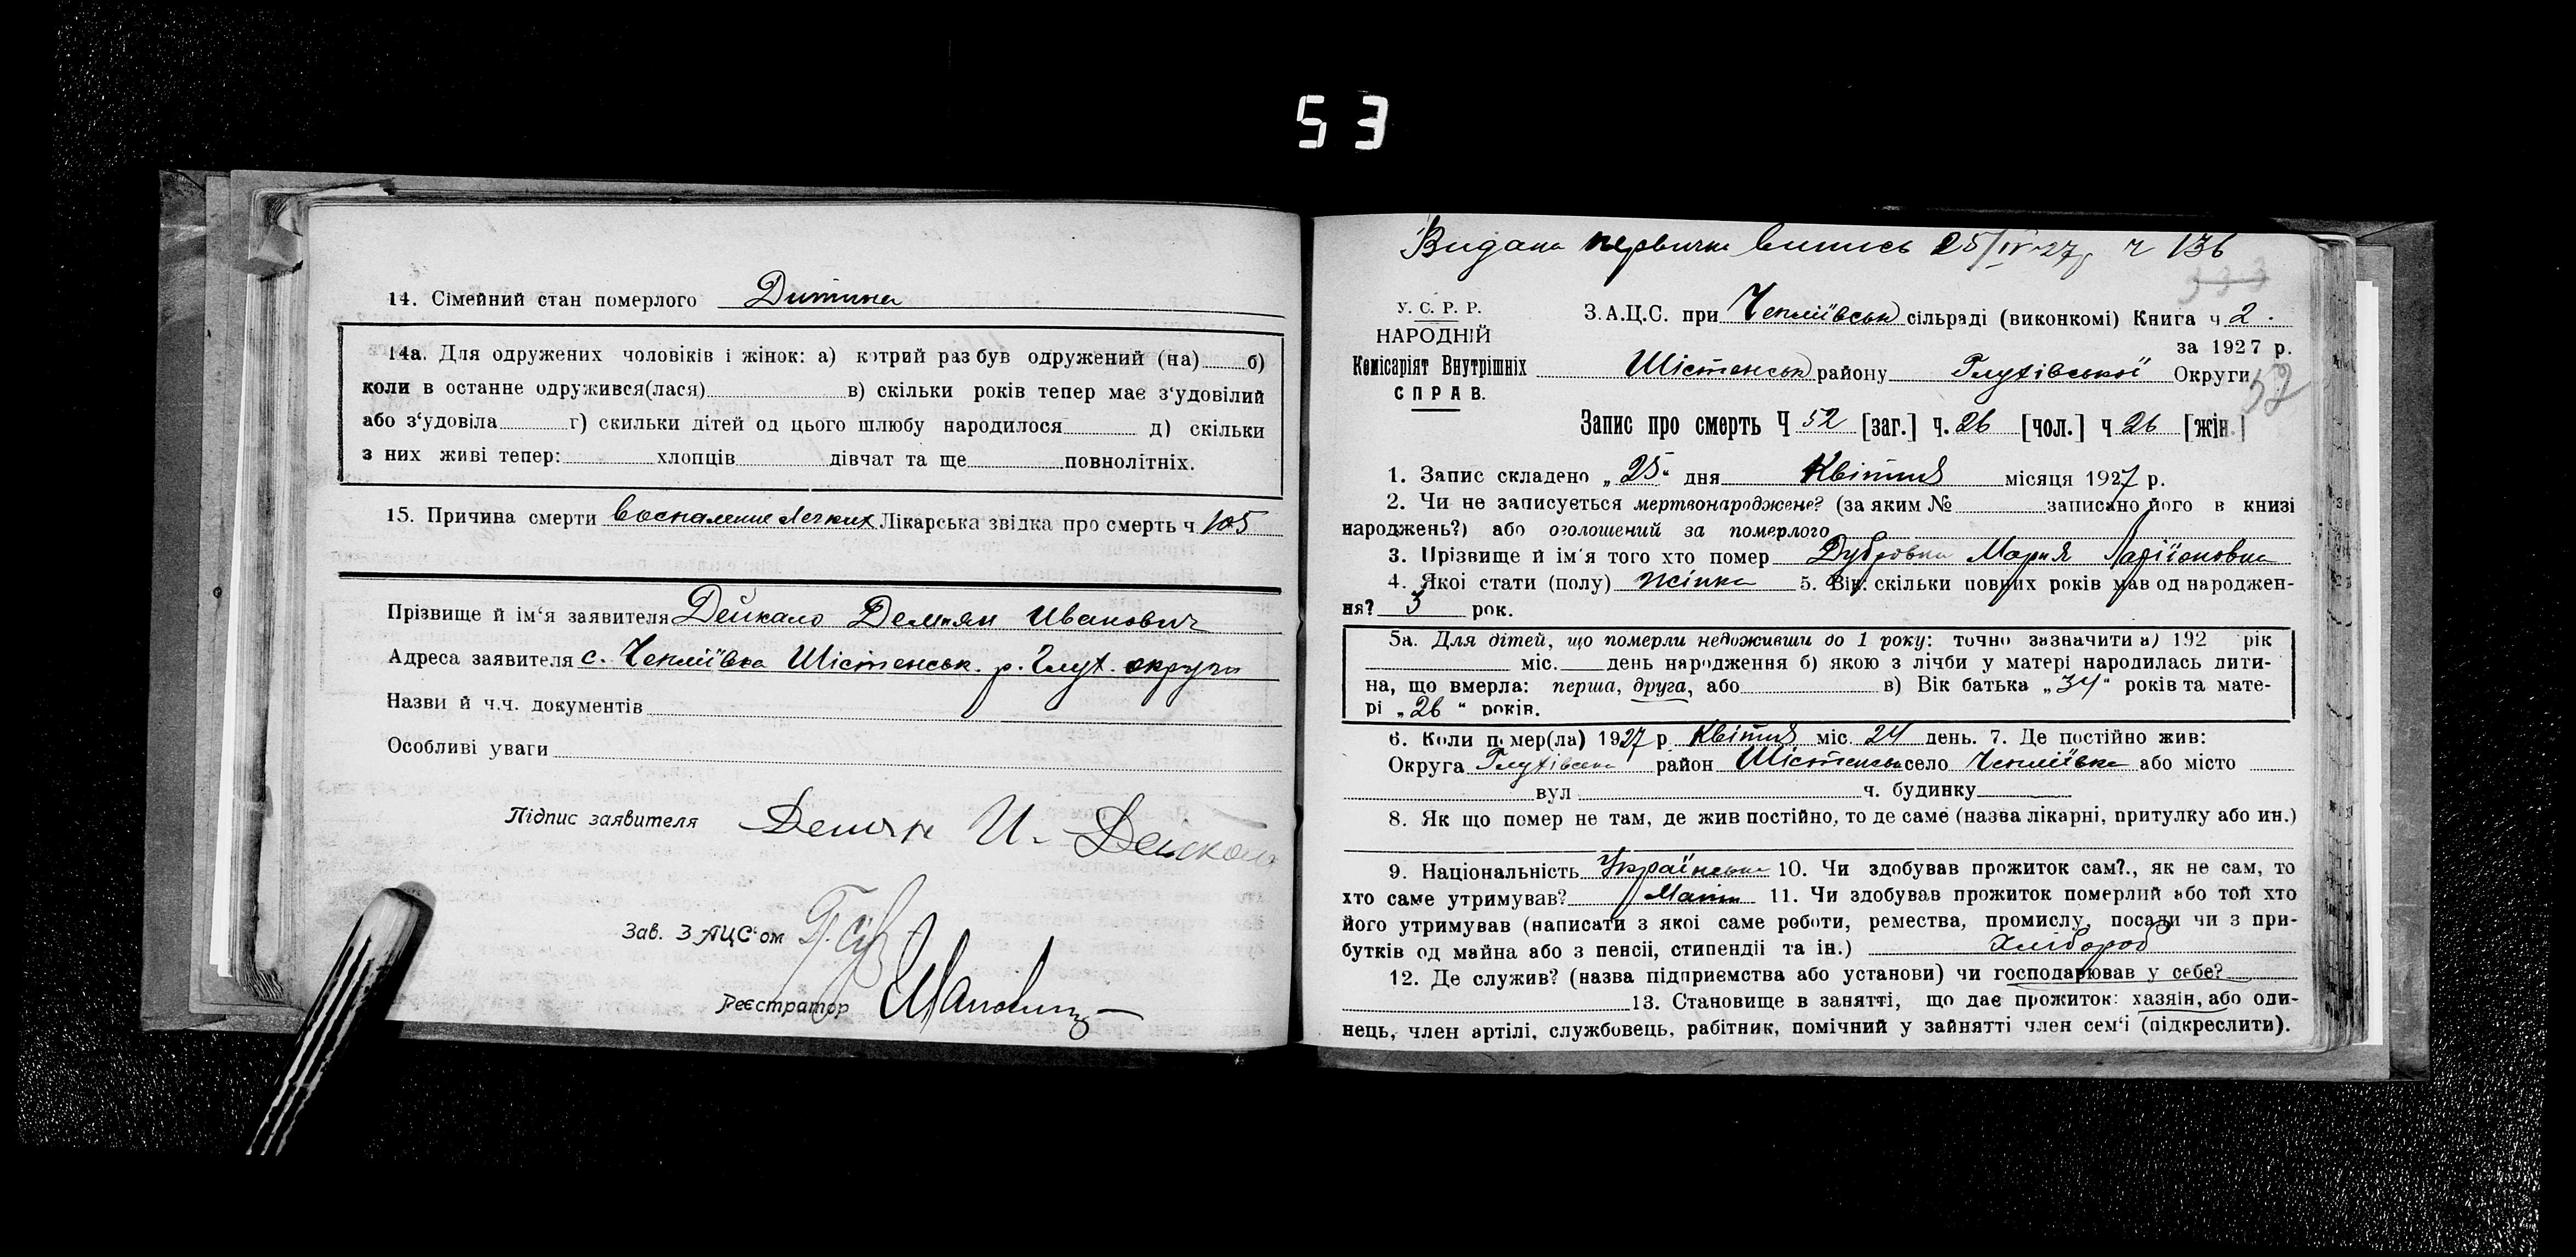 53
14. Сімейний стан померлого Дитина
14а. Для одружених чоловіків і жінок: а) котрий раз був одружений (на) б)
коли в останне одружився(лася) в) скільки років тепер має з‘удовілий
або з‘удовіла г) скильки дітей од цього шлюбу народилося д) скільки
з них живі тепер: хлопців дівчат та ще повнолітніх.
15. Причина смерти воспаление легких Лікарська звідка про смерть ч 105
Прізвище й ім‘я заявителя Дейкало Демян Иванович
Адреса заявителя с. Чепліївка Шістенськ. р. Глух. округи
Назви й ч.ч. документів
Особливі уваги
Підпис заявителя Демян И. Дейкало
Зав. ЗАЦС‘ом
Реєстратор
Видана первична випись 25/IV-27р ч 136
333
У. С. Р. Р.
НАРОДНІЙ
Комісаріят Внутрішніх
СПРАВ.
З.А.Ц.С. при Чепліївськ сільраді (виконкомі) Книга ч 2.
за 1927 р.
Шістенськ району Глухівської Округи
52
Запис про смерть Ч 52 [заг.] ч. 26 [чол.] ч 26 [жін.]
1. Запис складено „25“ дня Квітня місяця 1927 р.
2. Чи не записується мертвонароджене? (за яким № записано його в книзі
народжень?) або оголошений за померлого
3. Прізвище й ім‘я того хто помер Дубровка Мария Ларіїоновна
4. Якоі стати (полу) жінка 5. Вік: скільки повних років мав од народжен-
ня? 3 рок.
5а. Для дітей, що померли недоживши до 1 року: точно зазначити а) 192 рік
міс. день народження б) якою з лічби у матері народилась дити-
на, що вмерла: перша, друга, або в) Вік батька „34“ років та мате-
рі „26“ років.
6. Коли помер(ла) 1927 р Квітня міс. 24 день. 7. Де постійно жив:
Округа Глухівська район Шістенськ село Чепліївка або місто
вул ч. будинку
8. Як що помер не там, де жив постійно, то де саме (назва лікарні, притулку або ин.)
9. Національність Українська 10. Чи здобував прожиток сам?., як не сам, то
хто саме утримував? Мати 11. Чи здобував прожиток померлий або той хто
його утримував (написати з якоі саме роботи, ремества, промислу, посади чи з при-
бутків од майна або з пенсіі, стипендіі та ін.) Хлібороб
12. Де служив? (назва підприемства або установи) чи господарював у себе?
13. Становище в занятті, що дає прожиток: хазяін, або оди-
нець, член артілі, службовець, рабітник, помічний у зайнятті член сем‘і (підкреслити).